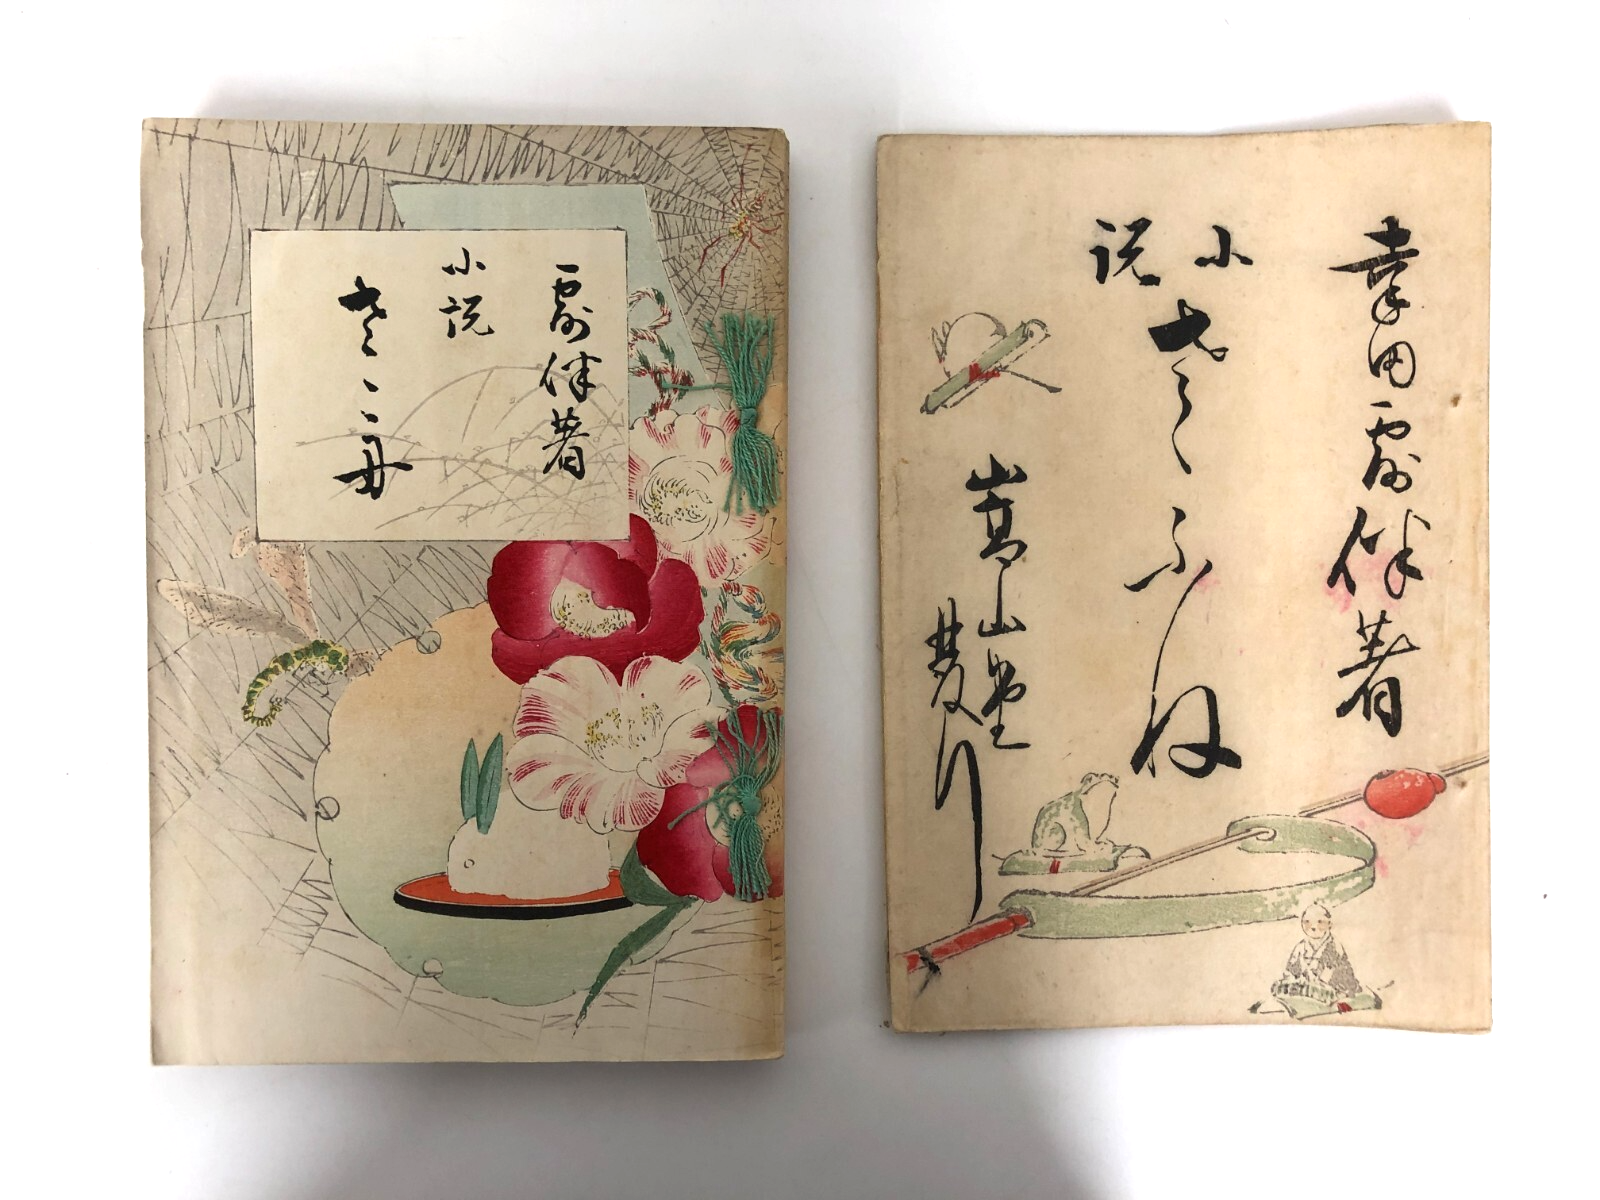 露伴著
小説
さゝ舟
幸田露伴著
小説
さゝふね
嵩山堂
發行